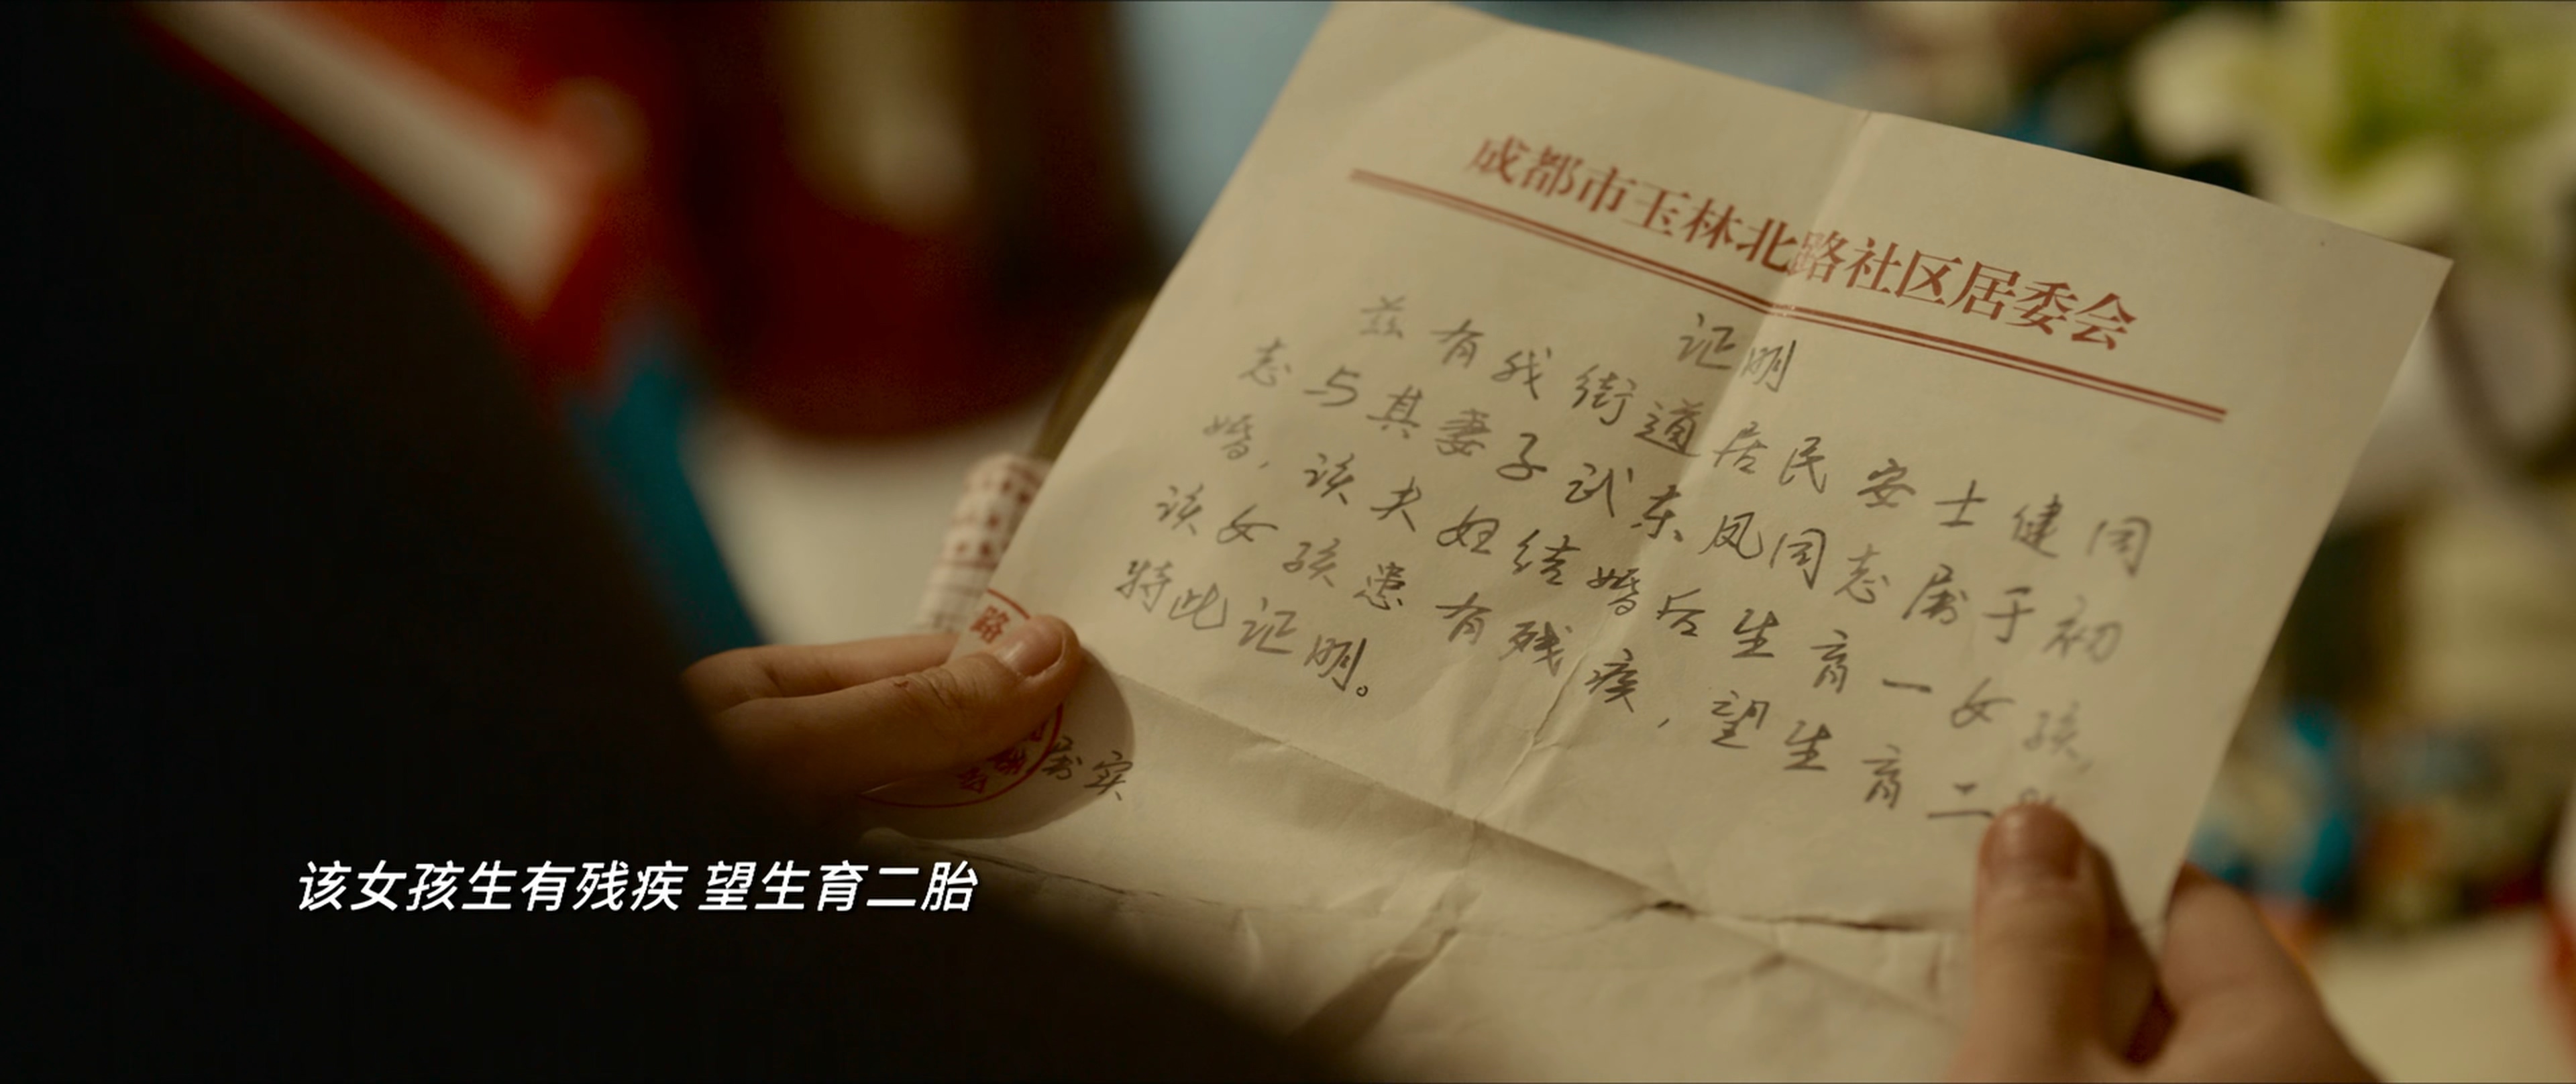 成都市玉林北路社区居委会
证明
兹有我街道居民安士健同
志与其妻子武东凤同志属于初
婚，该夫妇结婚后生育一女孩，
该女孩患有残疾，望生育二
特此证明。
路
属实
该女孩生有残疾 望生育二胎